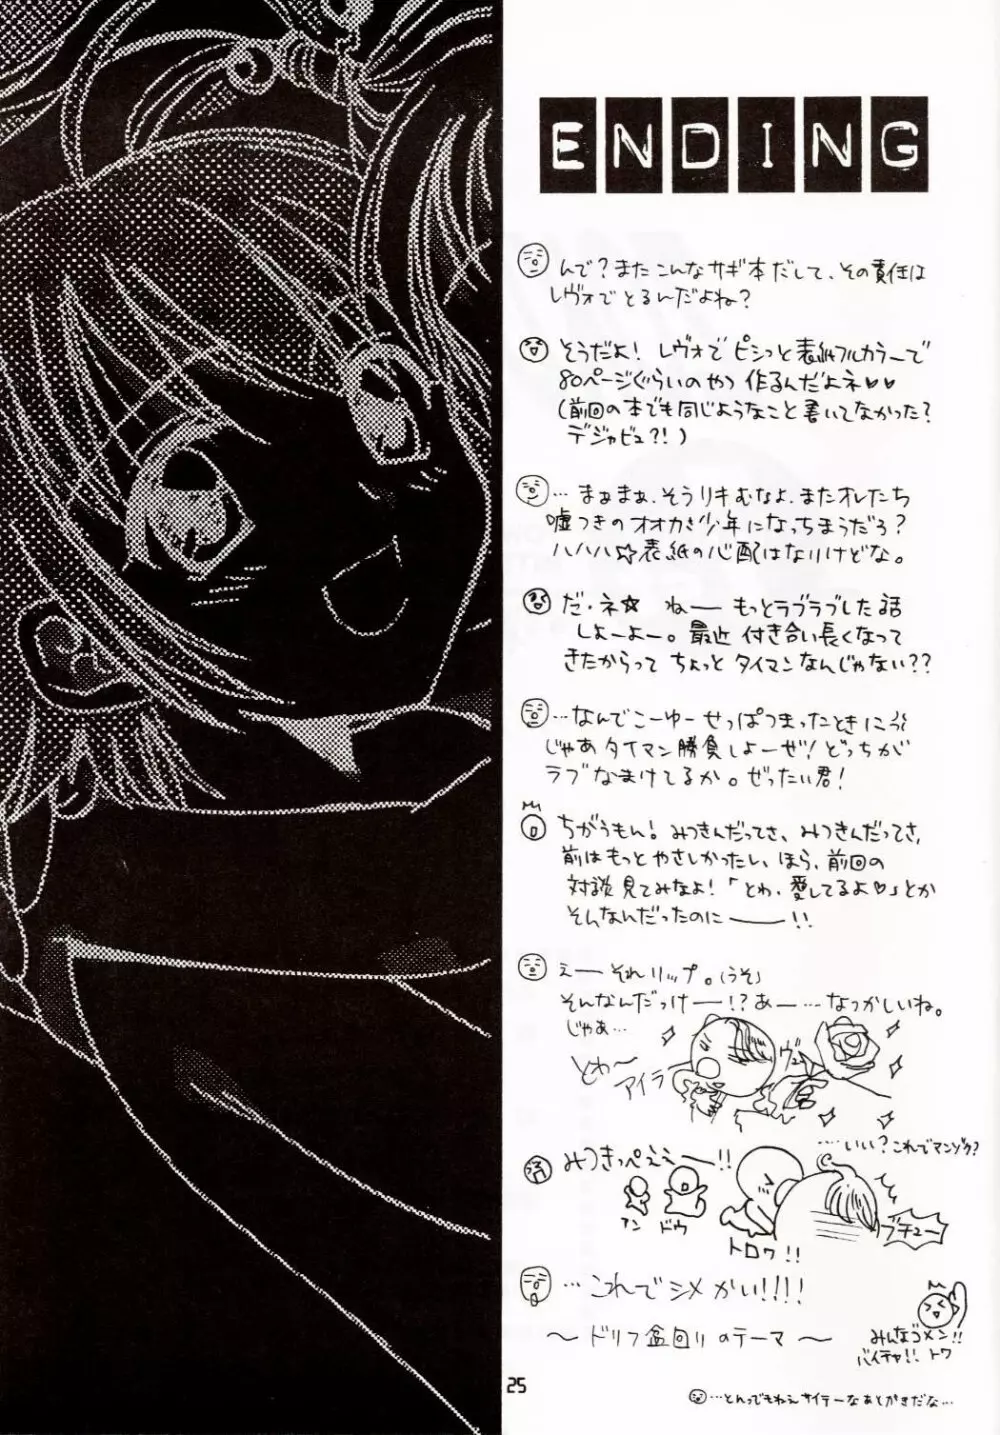 ENDING
んで?またこんなサギ本だして、その責任は
レヴォでとるんだよね?
そうだよ! レヴォでピシっと表紙フルカラーで
80ページぐらいのやつ作るんだよネ♥♥
(前回の本でも同じようなこと書いてなかった?
デジャビュ?!)
…まぁまぁ、そうリキむなよ、またオレたち
嘘つきのオオカミ少年になっちまうだろ?
ハハハ☆表紙の心配はないけどな。
だ・ネ☆ ねー もっとラブラブした話
しよーよー。最近 付き合い長くなって
きたからって ちょっと タイマンなんじゃない??
…なんでこーゆー せっぱつまったときに
じゃあタイマン勝負しよーぜ!どっちが
ラブなまけてるか。ぜったい君!
ちがうもん!みつきんだってさ、みつきんだってさ、
前はもっとやさしかったし、ほら、前回の
対談見てみなよ!「とわ、愛してるよ♥」とか
そんなんだったのに――!!
えー それリップ。(うそ)
そんなんだっけー!?あー…なつかしいね。
じゃあ…
とわ〜
アイラ
ヴュ
….いい?これでマンゾク?
みつきっぺえぇー!!
アン
ドウ
トロワ!!
ブチュー
…これでシメかい!!!!
〜ドリフ盆回りのテーマ〜
みんなゴメン!!
バイチャ!! トワ
25
…とんっでもねぇサイテーなあとがきだな…